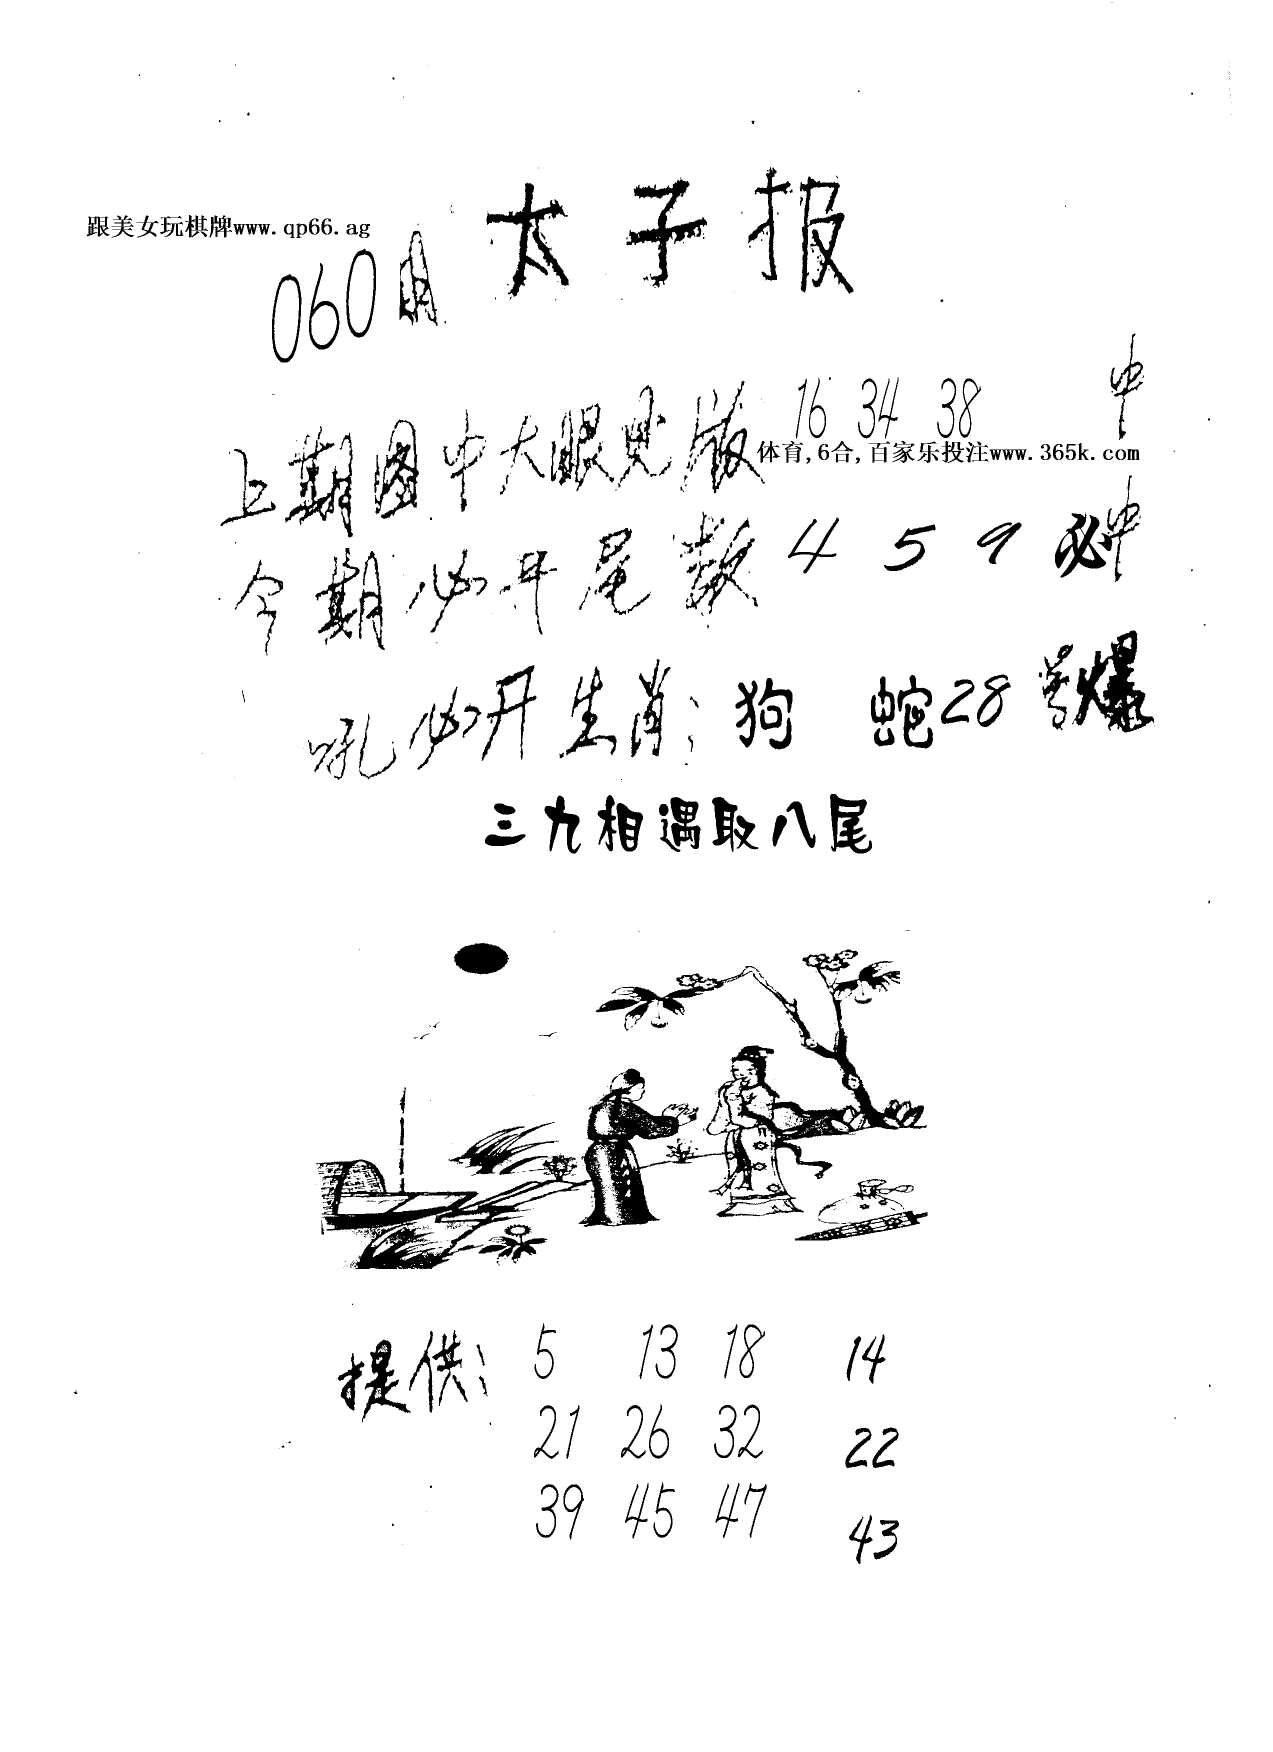 太子报
跟美女玩棋牌www.qp66.ag
060期
上期图中大眼见版 16 34 38 中
体育,6合,百家乐投注www.365k.com
今期必开尾数 4 5 9 必中
吼必开生肖: 狗 蛇 28 号爆
三九相遇取八尾
提供: 5 13 18 14
21 26 32 22
39 45 47 43